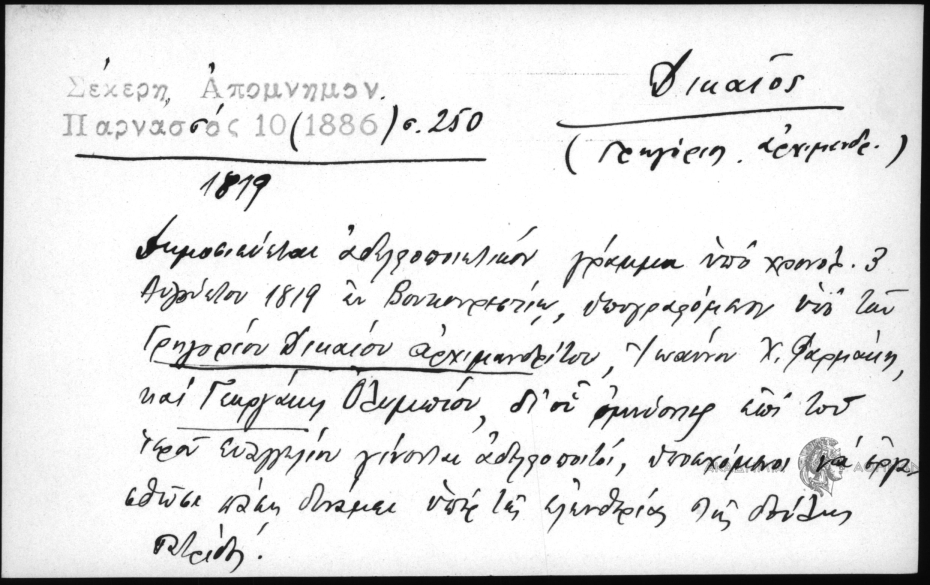 Σέκερη, Ἀπομνημον.
Παρνασσός 10 (1886) σ. 250
Δικαῖος
(Γρηγόριος ἀρχιμανδρ.)
1819
Δημοσιεύεται ἀδελφοποιητικόν γράμμα ὑπό χρονολ. 3
Αὐγούστου 1819 ἐν Βουκουρεστίῳ, ὑπογραφόμενον ὑπό τῶν
Γρηγορίου Δικαίου ἀρχιμανδρίτου, Ἰωάννου Χ. Φαρμάκη,
καί Γεωργάκη Ὀλυμπίου, δι' οὗ ὀμνύοντες ἐπί τοῦ
ἱεροῦ εὐαγγελίου γίνονται ἀδελφοποιτοί, ὑποσχόμενοι νά
πάσῃ δυνάμει ὑπέρ τῆς ἐλευθερίας τῆς δούλης
πατρίδος.